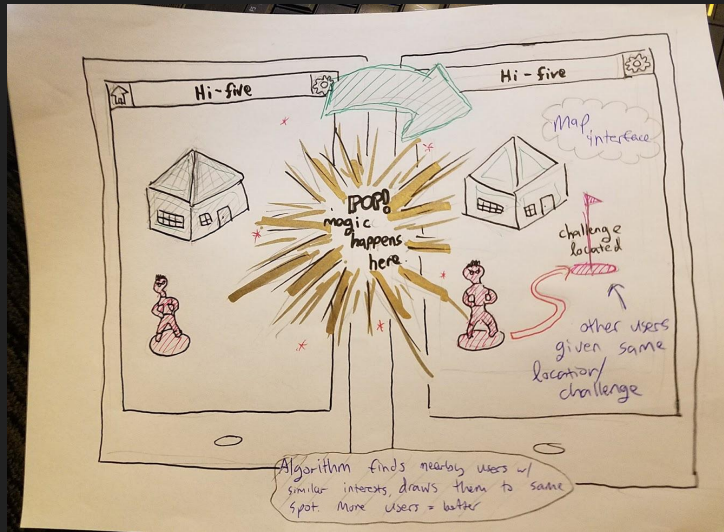 Hi-five
Hi-five
Map
interface
POP!
magic
happens
here
challenge
located
other users
given same
location/
challenge
Algorithm finds nearby users w/
similar interests, draws them to same
spot. More users = better